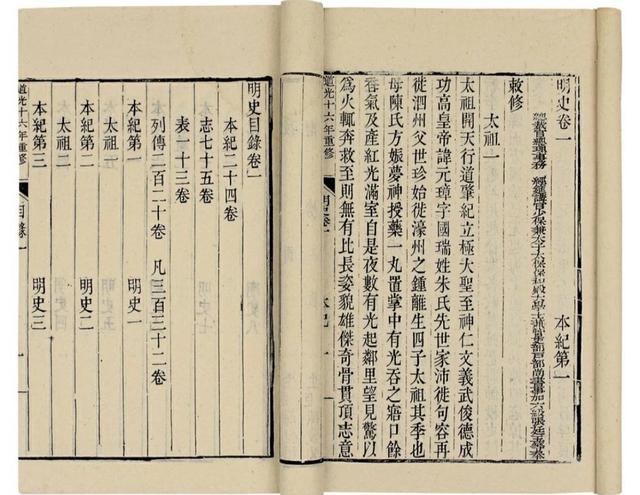 明史卷一 總裁官總理事務 經筵講官少保兼太子太保保和殿大學士兼管吏部戶部尚書事加六級張廷玉等奉 本紀第一
敕修
太祖一
太祖開天行道肇紀立極大聖至神仁文義武俊德成
功高皇帝諱元璋字國瑞姓朱氏先世家沛徙句容再
徙泗州父世珍始徙濠州之鍾離生四子太祖其季也
母陳氏方娠夢神授藥一丸置掌中有光吞之寤口餘
香氣及產紅光滿室自是夜數有光起鄰里望見驚以
為火輒奔救至則無有比長姿貌雄傑奇骨貫頂志意
道光十六年重修 明史卷一 本紀 一
明史目錄卷一
本紀二十四卷
志七十五卷
表一十三卷
列傳二百二十卷 凡三百三十二卷
本紀第一 明史一
太祖一
本紀第二 明史二
太祖二
本紀第三 明史三
道光十六年重修 目錄 一